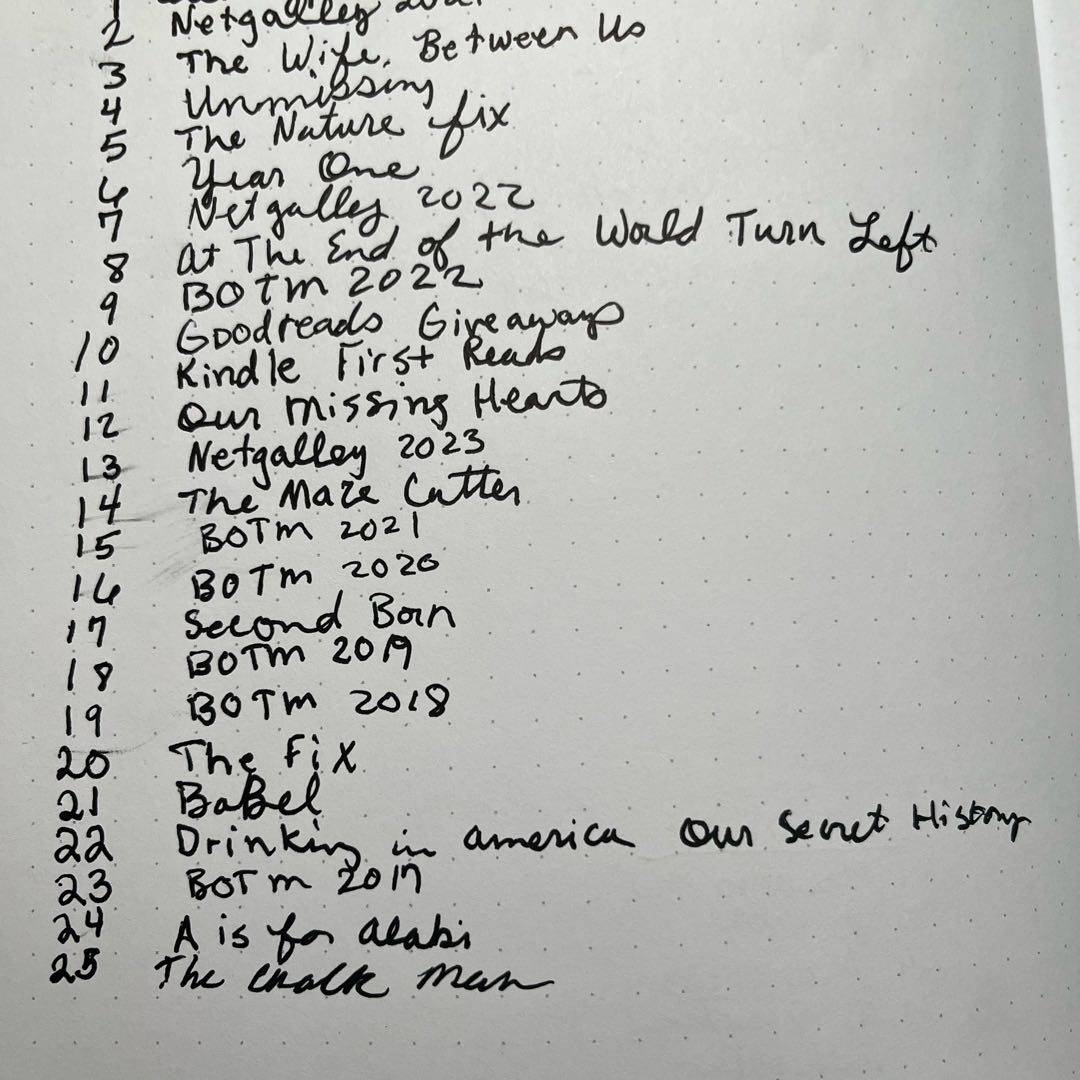 2 Netgalley
3 The Wife Between Us
4 Unmissing
5 The Nature fix
6 Year One
7 Netgalley 2022
8 At The End of the World Turn Left
9 BOTM 2022
10 Goodreads Giveaways
11 Kindle First Reads
12 Our Missing Hearts
13 Netgalley 2023
14 The Maze Cutter
15 BOTM 2021
16 BOTM 2020
17 Second Born
18 BOTM 2019
19 BOTM 2018
20 The Fix
21 BaBel
22 Drinking in america Our Secret History
23 BOTM 2017
24 A is for alabi
25 The Chalk Man